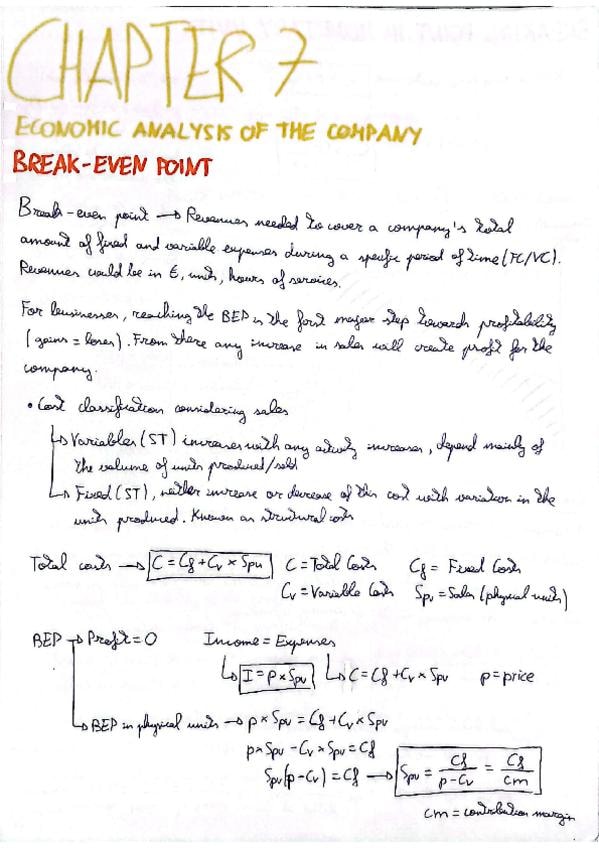 CHAPTER 7
ECONOMIC ANALYSIS OF THE COMPANY
BREAK-EVEN POINT
Break-even point → Revenues needed to cover a company's total
amount of fixed and variable expenses during a specific period of time (FC/VC).
Revenues could be in €, units, hours of services.
For businesses, reaching the BEP is the first major step towards profitability
(gains = loses). From there any increase in sales will create profit for the
company.
• Cost classification considering sales
↳ Variables (ST) increases with any activity increases, depend mainly of
the volume of units produced/sold
↳ Fixed (ST), neither increase or decrease of this cost with variation in the
units produced. Known as structural costs
Total costs → C = Cf + Cv × Spu C = Total Costs Cf = Fixed Costs
Cv = Variable Costs Spu = Sales (physical units)
BEP → Profit = 0 Income = Expenses
↳ I = p × Spu ↳ C = Cf + Cv × Spu p = price
↳ BEP in physical units → p × Spu = Cf + Cv × Spu
p × Spu - Cv × Spu = Cf
Spu(p - Cv) = Cf → Spu = Cf / (p - Cv) = Cf / cm
cm = contribution margin